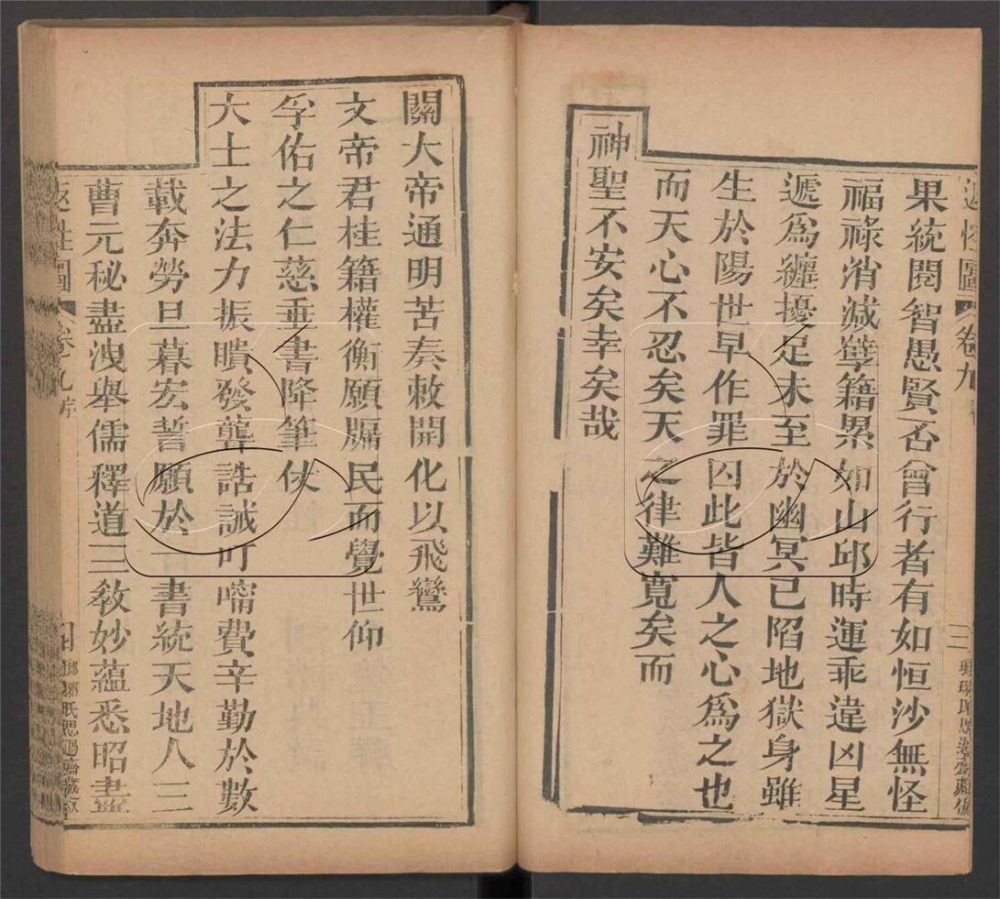 果統閱智愚賢否會行者有如恒沙無怪
福祿消減孽籍累如山邱時運乖違凶星
遞爲纏擾足未至於幽冥已陷地獄身雖
生於陽世早作罪囚此皆人之心爲之也
而天心不忍矣天之律難寬矣而
神聖不安矣幸矣哉
關大帝通明苦奏敕開化以飛鸞
文帝君桂籍權衡願牖民而覺世仰
孚佑之仁慈垂書降筆仗
大士之法力振瞶發聾誥誡叮嚀費辛勤於數
載奔勞旦暮宏誓願於一書統天地人三
曹元秘盡洩舉儒釋道三敎妙蘊悉昭盡
返性圖 卷九序